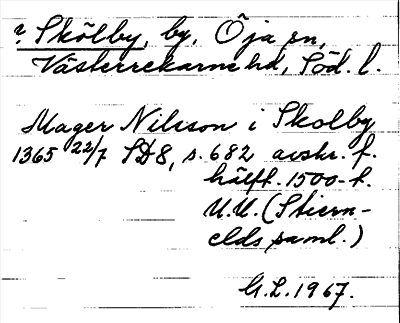 ? Skölby, by, Öja sn,
Västerrekarne hd, Söd. l.
Mager Nilsson i Skolby
1365 22/7 SD 8, s. 682 avskr. f.
hälft. 1500-t.
U.U. (Stiern-
elds saml.)
G.L. 1967.